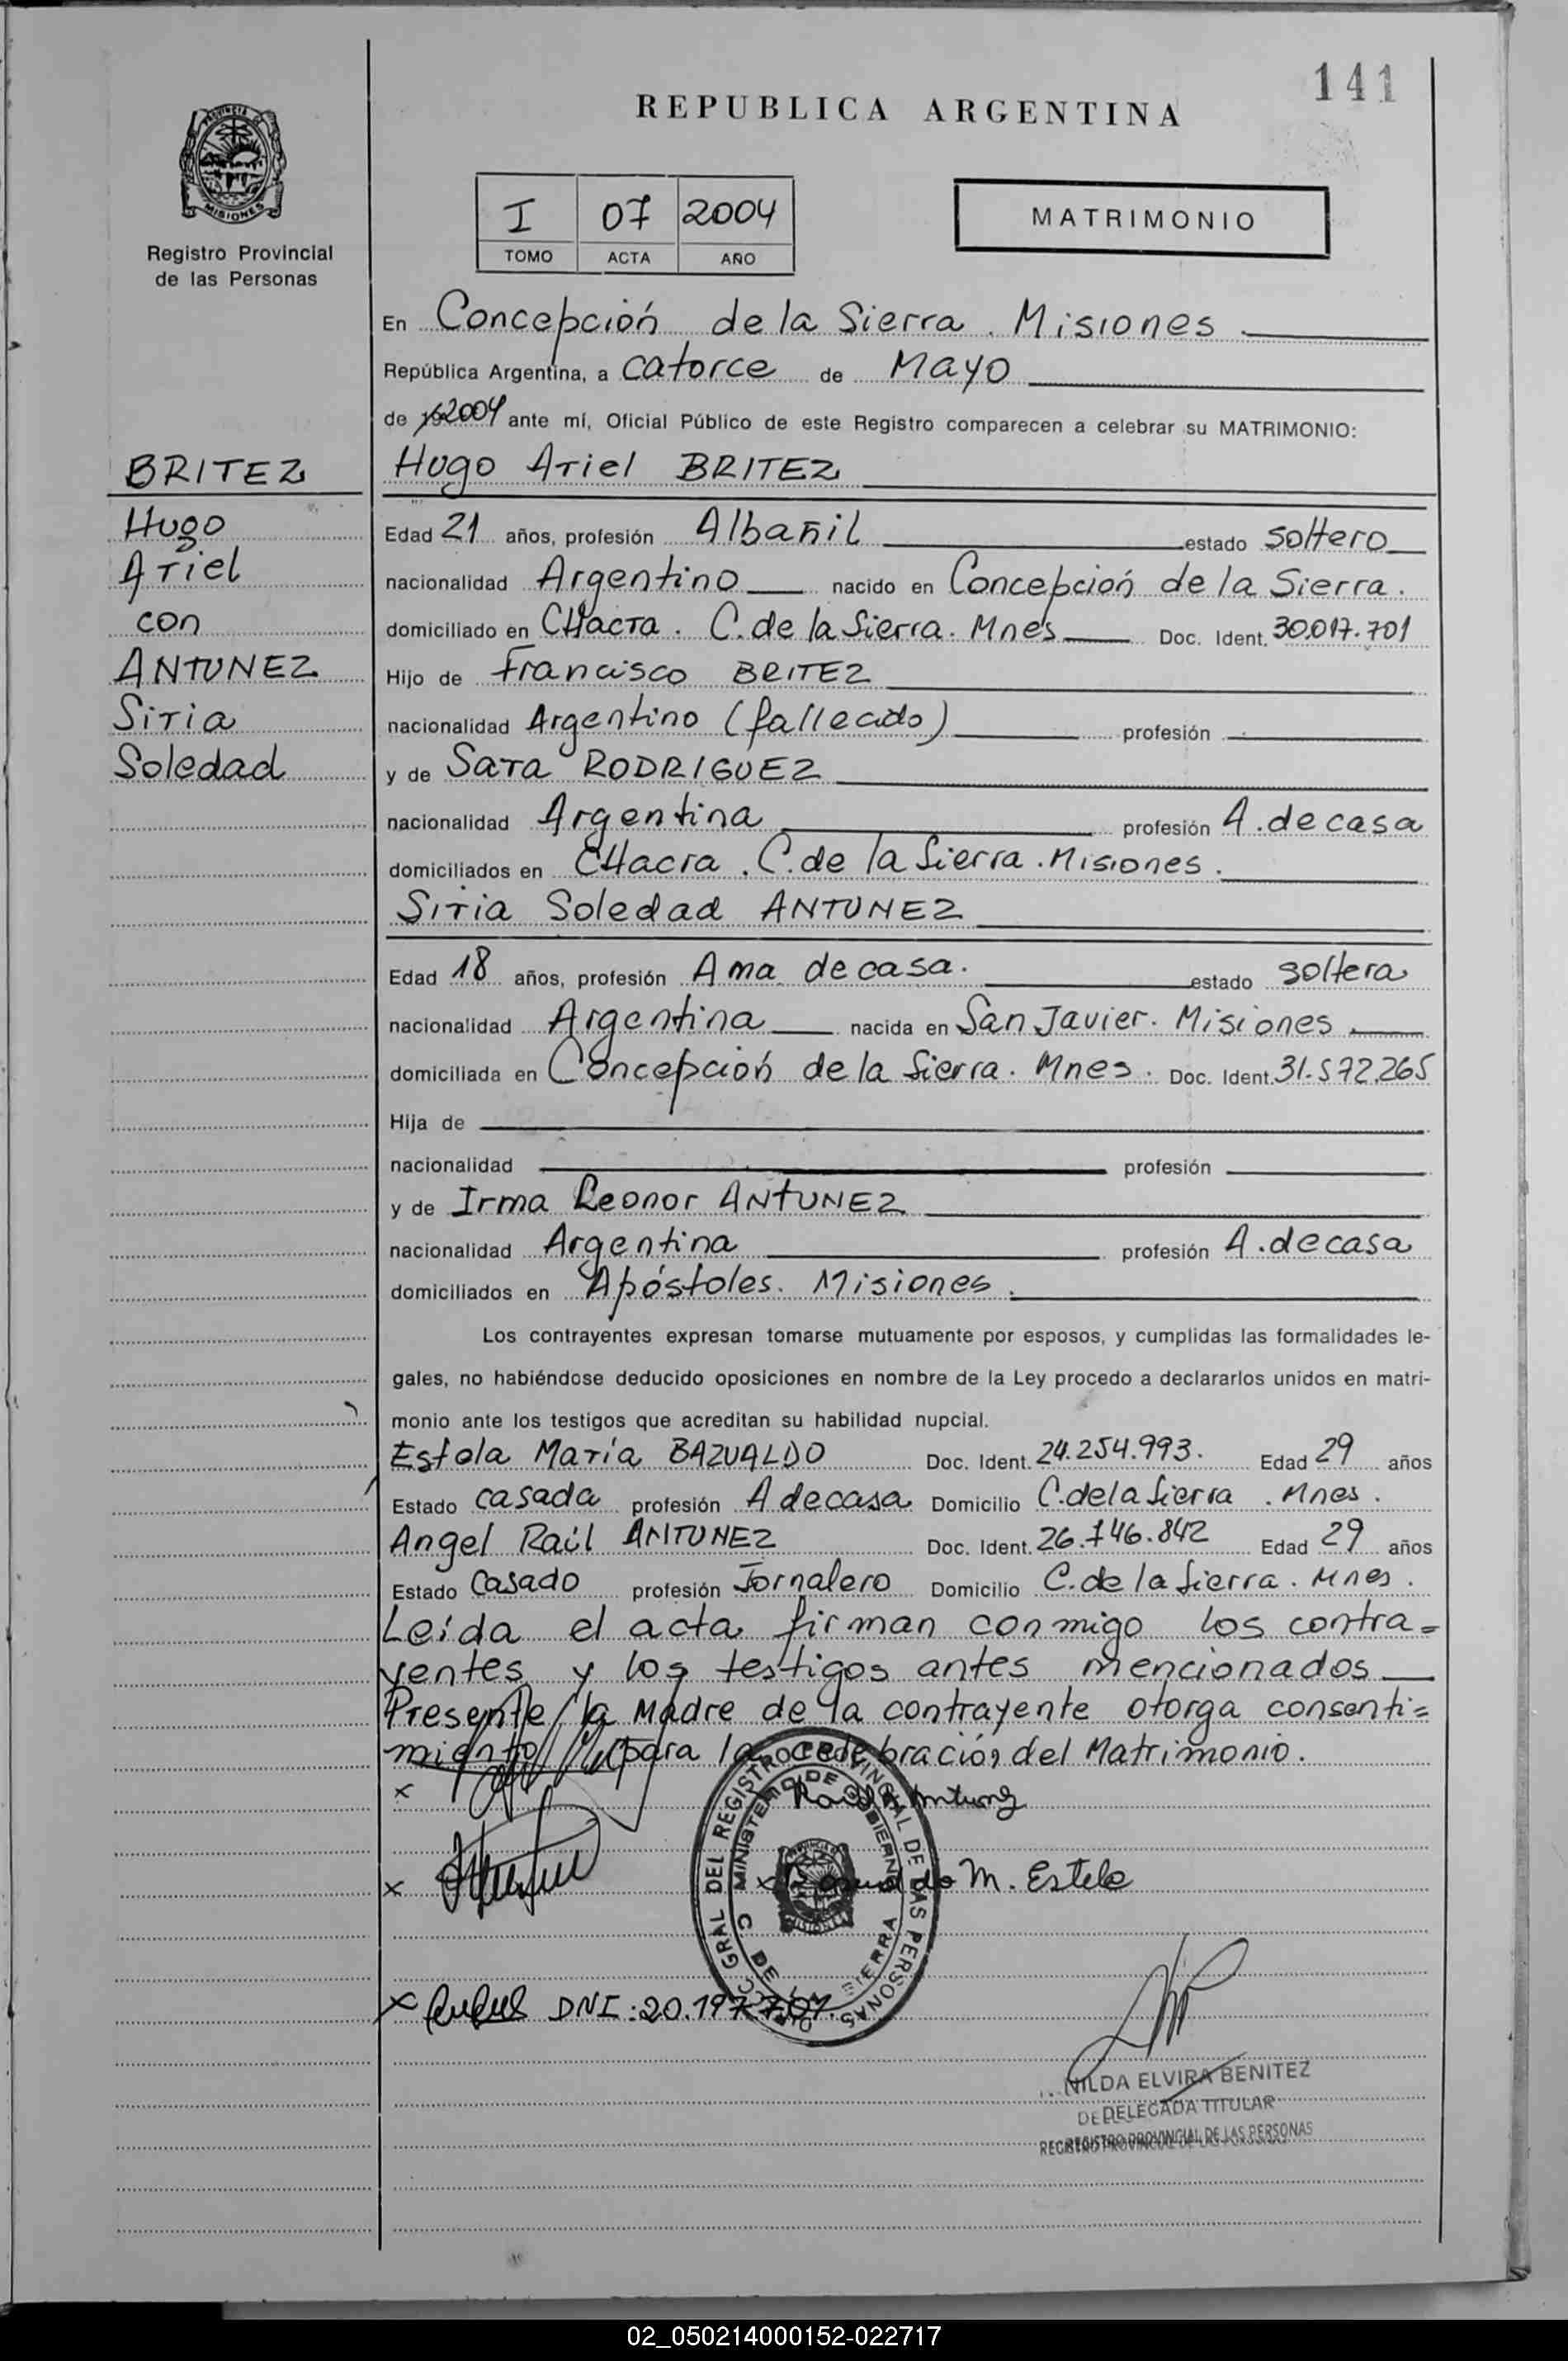 141
REPUBLICA ARGENTINA
PROVINCIA DE
MISIONES
Registro Provincial
de las Personas
I 07 2004
TOMO ACTA AÑO
MATRIMONIO
En Concepción de la Sierra. Misiones.
República Argentina, a catorce de Mayo
de 2004 ante mí, Oficial Público de este Registro comparecen a celebrar su MATRIMONIO:
BRITEZ
Hugo
Ariel
con
ANTUNEZ
Siria
Soledad
Hugo Ariel BRITEZ
Edad 21 años, profesión Albañil estado soltero
nacionalidad Argentino nacido en Concepción de la Sierra.
domiciliado en CHacra. C. de la Sierra. Mnes Doc. Ident. 30.017.701
Hijo de Francisco BRITEZ
nacionalidad Argentino (fallecido) profesión
y de Sara RODRIGUEZ
nacionalidad Argentina profesión A. de casa
domiciliados en CHacra. C. de la Sierra. Misiones.
Siria Soledad ANTUNEZ
Edad 18 años, profesión Ama de casa. estado soltera
nacionalidad Argentina nacida en San Javier. Misiones
domiciliada en Concepción de la Sierra. Mnes. Doc. Ident. 31.572.265
Hija de
nacionalidad profesión
y de Irma Leonor ANTUNEZ
nacionalidad Argentina profesión A. de casa
domiciliados en Apóstoles. Misiones.
Los contrayentes expresan tomarse mutuamente por esposos, y cumplidas las formalidades le-
gales, no habiéndose deducido oposiciones en nombre de la Ley procedo a declararlos unidos en matri-
monio ante los testigos que acreditan su habilidad nupcial.
Estela María BAZUALDO Doc. Ident. 24.254.993. Edad 29 años
Estado casada profesión A de casa Domicilio C. de la Sierra. Mnes.
Angel Raúl ANTUNEZ Doc. Ident. 26.746.842 Edad 29 años
Estado Casado profesión Jornalero Domicilio C. de la Sierra. Mnes.
Leída el acta firman conmigo los contra=
yentes y los testigos antes mencionados
Presente la Madre de la contrayente otorga consenti=
miento para la celebración del Matrimonio.
x
x
x M. Estela
GRAL DEL REGISTRO PROVINCIAL DE LAS PERSONAS
MINISTERIO DE GOBIERNO
C. DE SIERRA
x DNI: 20.197.701.
NILDA ELVIRA BENITEZ
DELEGADA TITULAR
REGISTRO PROVINCIAL DE LAS PERSONAS
02_050214000152-022717